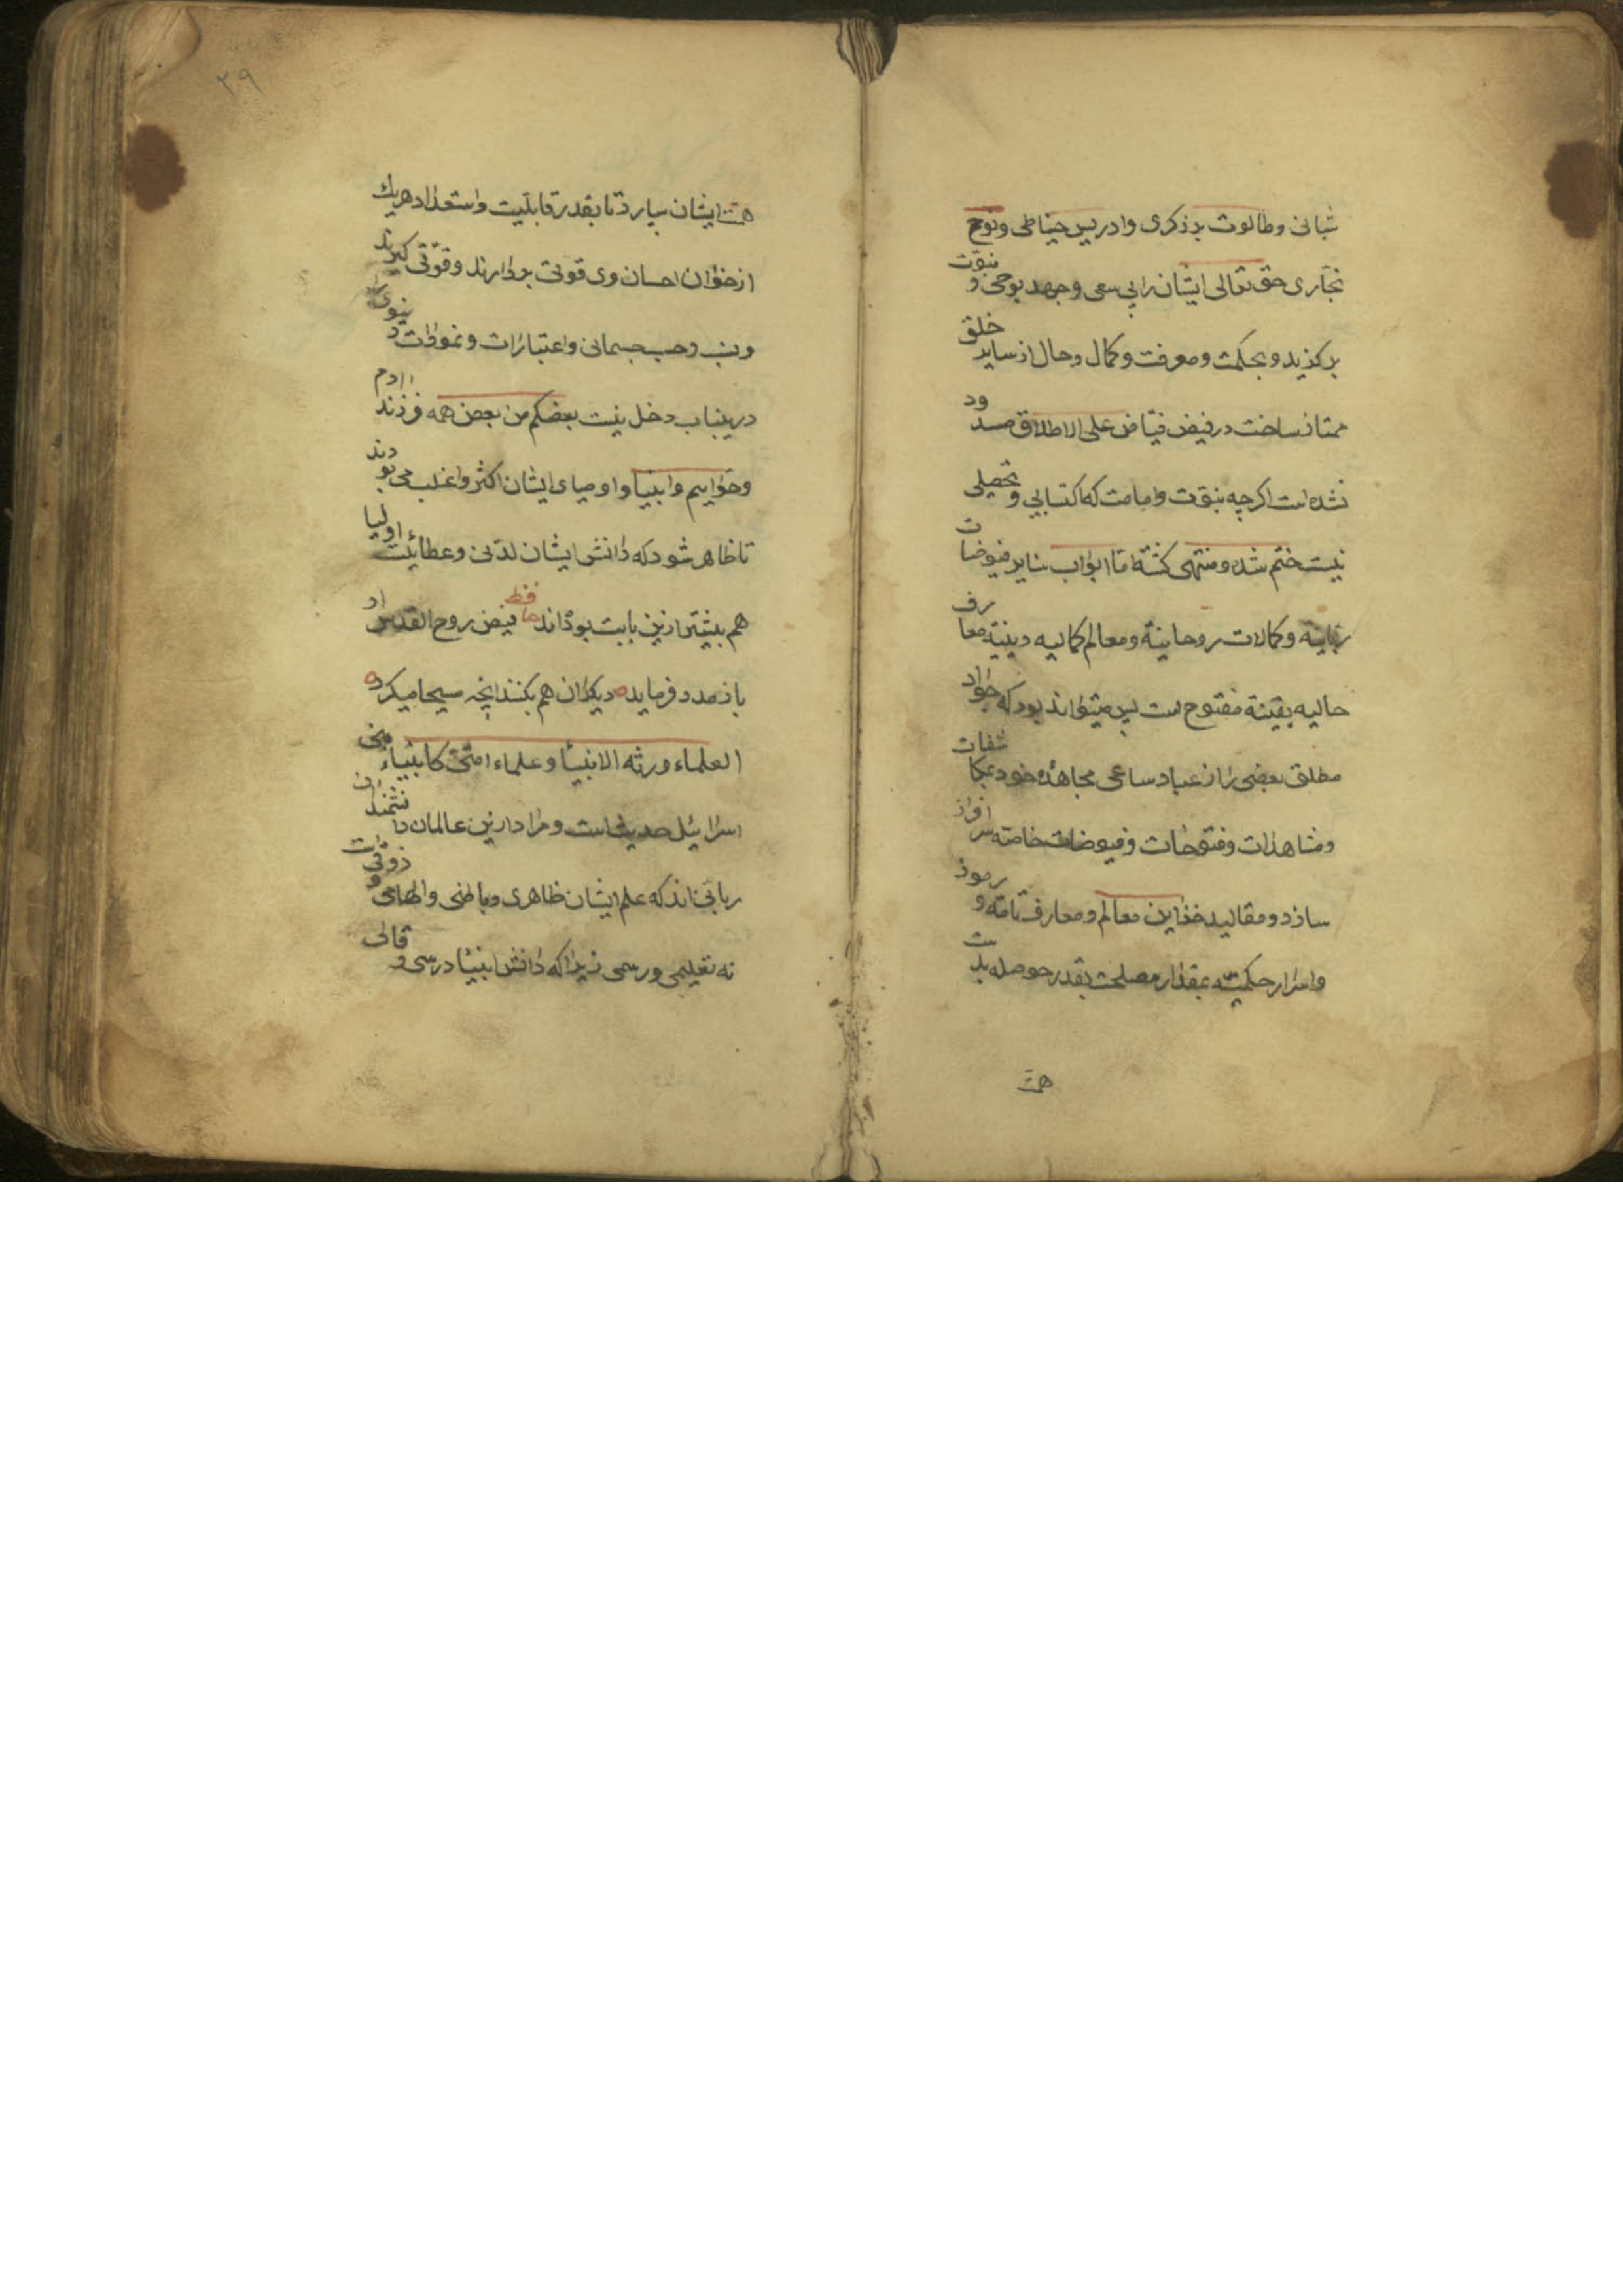 شبانی و طالوت بذکری و ادریس خیاطی و نوح
نجاری حق تعالی ایشان را بی سعی و جهد بوحی و نبوت
بر کزید و بحکمت و معرفت و کمال و حال از سایر خلق
ممتاز ساخت در فیض فیاض علی الاطلاق مسدود
نشده است اکرچه نبوت و امامت که اکتسابی و تحصیلی
نیست ختم شده و منتهی کشته اما ابواب سایر فیوضات
ربانیه و کمالات روحانیة و معالم کمالیه دینیة معارف
حالیه یقینة مفتوح است پس میتواند بود که جواد
مطلق بعضی را از عباد ساعی مجاهد خود بمکاشفات
و مشاهدات و فتوحات و فیوضات خاصه سرافراز
سازد و مقالید خزاین معالم و معارف تامه و رموز
و اسرار حکمیته بمقدار مصلحت بقدر حوصله بدست
همت
۲۹
همت ایشان سپارد تا بقدر قابلیت و استعداد هریك
از خوان احسان وی قوتی بردارند و قوتی کیرند
و نسب و حسب جسمانی و اعتبارات و نمودات دنیوی را
درینباب دخل نیست بعضکم من بعض همه فرزند ادم
و حواییم و انبیا و اوصیای ایشان اکثر و اغلب می بودند
تا ظاهر شود که دانش ایشان لدنی و عطائیست اولیا
هم بیشتر ازین بابت بوده‌اند حافظ فیض روح القدس ار
باز مدد فرماید ه دیکران هم بکنند انچه مسیحا میکرد ه
العلماء ورثه الانبیا و علماء امتی کانبیاء بنی
اسرائیل حدیث است و مراد ازین عالمان دانشمندان
ربانی‌اند که علم ایشان ظاهری و باطنی و الهامی و ذوقی است
نه تعلیمی و رسمی زیرا که دانش انبیا درسی و قالی